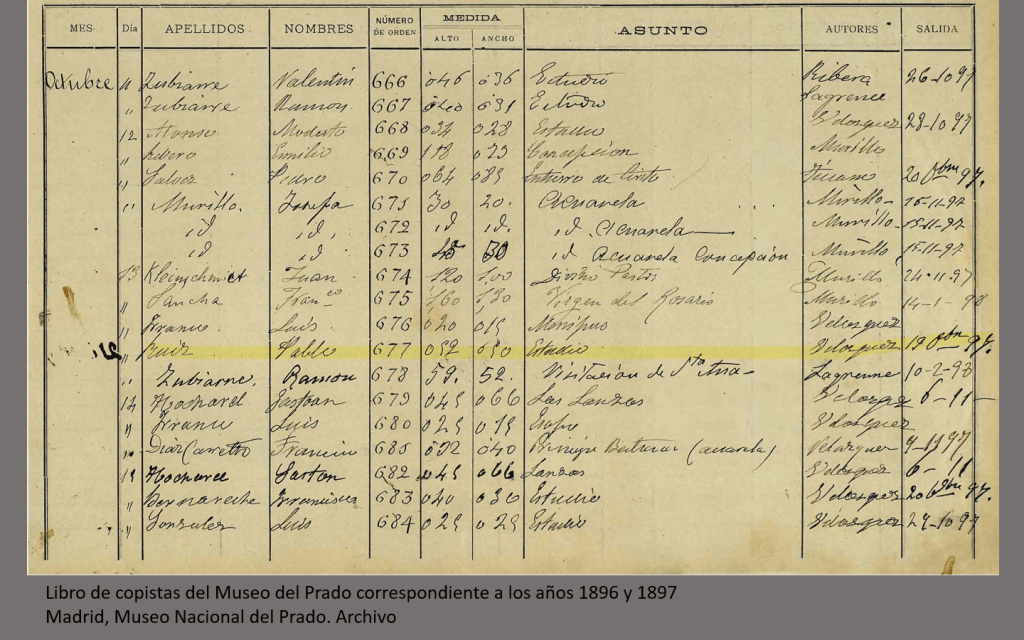 MES. Día APELLIDOS NOMBRES NÚMERO DE ORDEN MEDIDA ALTO ANCHO ASUNTO AUTORES SALIDA
Octubre 11 Zubiarre Valentín 666 046 036 Estudio Ribera 26-10-97
" Zubiarre Ramon 667 040 031 Estudio Lagrence
12 Alonso Modesto 668 034 028 Velasquez 28-10-97
" Emilio 669 118 073 Concepcion Murillo
" Galvez Pedro 670 064 085 Entierro de Cristo 97.
" Murillo. Josefa 671 30 20. Acuarela Murillo 15-11-97
id id, 672 id id. id Acuarela Murillo 15-11-97
id id 673 30 id Acuarela Concepción Murillo 15-11-97
13 Juan 674 120 100 Murillo 24-11-97
" Sancha Franco 675 160 120 Virgen del Rosario Murillo 14-1-98
" Luis 676 020 015 Menipo Velasquez
" Ruiz Pablo 677 Estudio Velasquez 97.
" Zubiarre. Ramon 678 59. 52. Visitacion de Sta Ana- Lagrenne 10-2-98
14 Hochard Gastoan 679 045 066 Las Lanzas 6-11-
" Luis 680 025 015 Esopo Velasquez
" Diaz Carreño 681 032 040 Principe Baltasar (acuarela) Velazquez 97
15 Hochard Gaston 682 045 066 Lanzas Velasquez 6-11
" Francisca 683 040 036 Estudio Velasquez 97.
" Gonzalez Luis 684 025 025 Estudio Velasquez 29-10-97
Libro de copistas del Museo del Prado correspondiente a los años 1896 y 1897
Madrid, Museo Nacional del Prado. Archivo